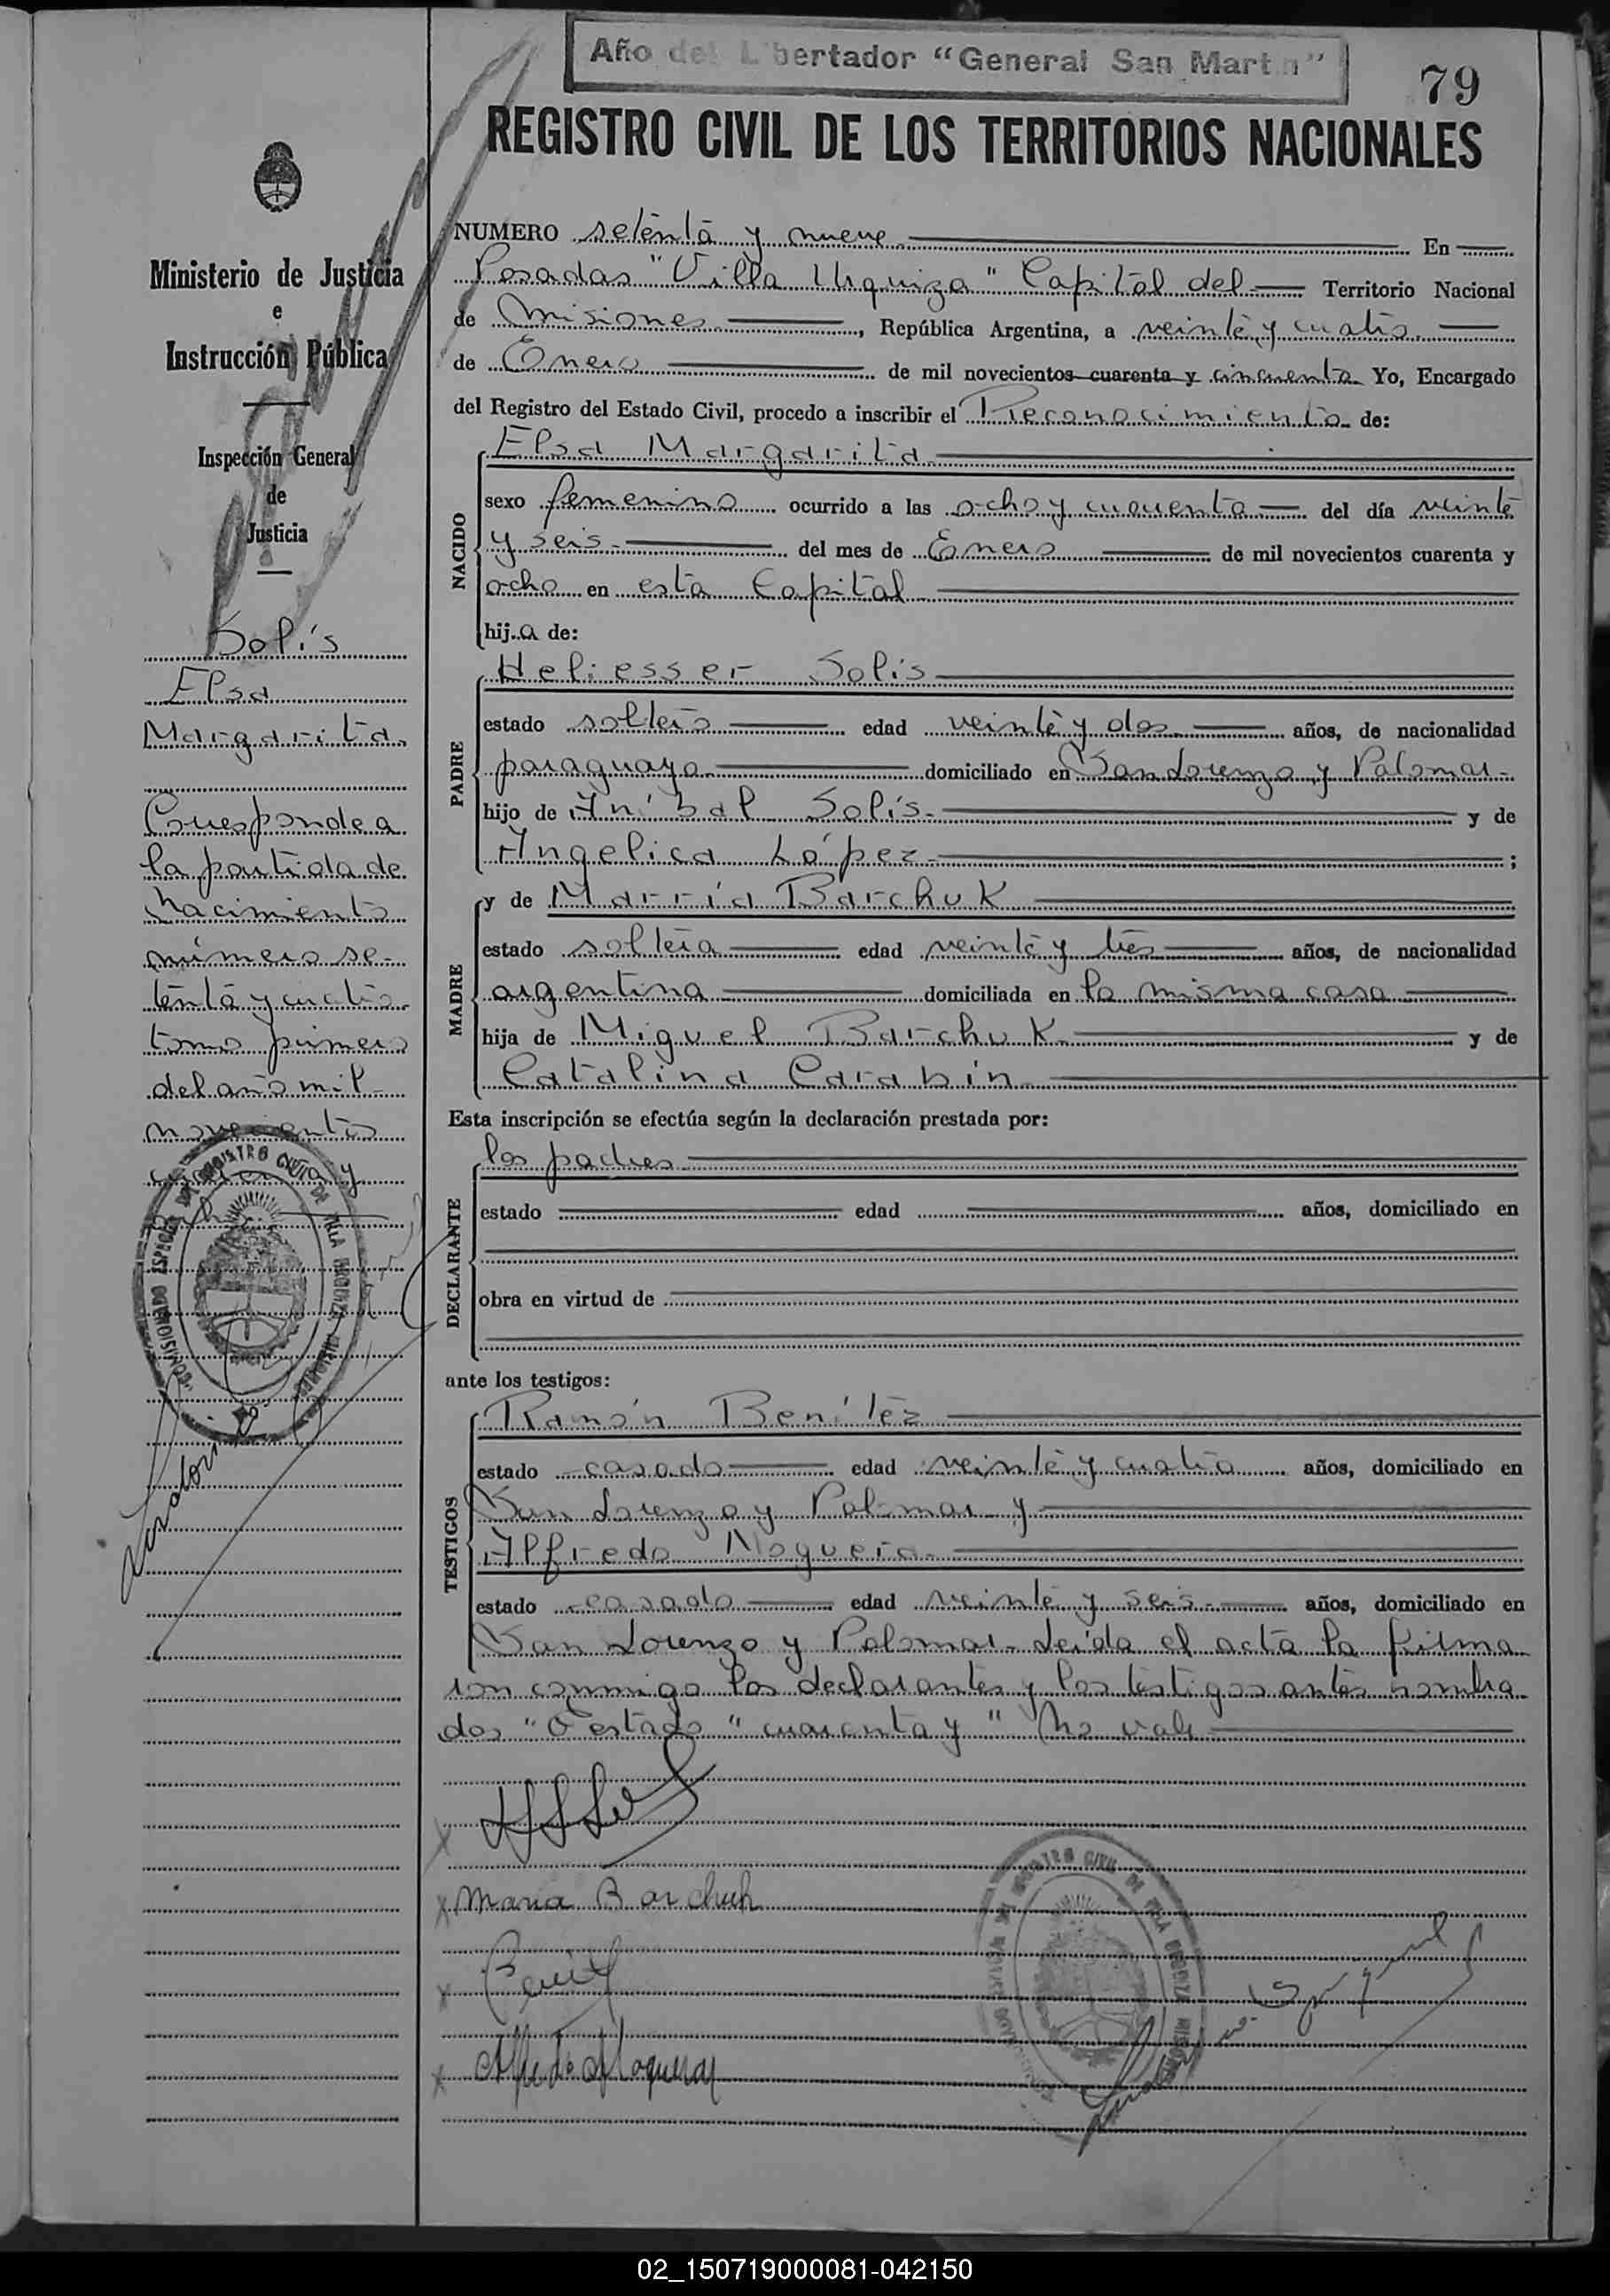 Año del Libertador "General San Martin"
79
REGISTRO CIVIL DE LOS TERRITORIOS NACIONALES
Ministerio de Justicia
e
Instrucción Pública
Inspección General
de
Justicia
Solís
Elsa
Margarita
Corresponde a
la partida de
nacimiento
número se-
tenta y cuatro
tomo primero
del año mil
novecientos
cuarenta y
ocho
NUMERO setenta y nueve En
Posadas "Villa Urquiza" Capital del Territorio Nacional
de Misiones, República Argentina, a veinte y cuatro
de Enero de mil novecientos cuarenta y cincuenta Yo, Encargado
del Registro del Estado Civil, procedo a inscribir el Reconocimiento de:
NACIDO
Elsa Margarita
sexo femenino ocurrido a las ocho y cuarenta del día veinte
y seis del mes de Enero de mil novecientos cuarenta y
ocho en esta Capital
hij.a de:
PADRE
Heliesser Solis
estado soltero edad veinte y dos años, de nacionalidad
paraguaya domiciliado en San Lorenzo y Palomar
hijo de Aníbal Solís y de
Angelica López ;
MADRE
y de María Barchuk
estado soltera edad veinte y tres años, de nacionalidad
argentina domiciliada en la misma casa
hija de Miguel Barchuk y de
Catalina Carabin
Esta inscripción se efectúa según la declaración prestada por:
DECLARANTE
los padres
estado edad años, domiciliado en
obra en virtud de
ante los testigos:
TESTIGOS
Ramón Benítez
estado casado edad veinte y cuatro años, domiciliado en
San Lorenzo y Palomar y
Alfredo Noguera
estado casado edad veinte y seis años, domiciliado en
San Lorenzo y Palomar. Leída el acta la firma
ron conmigo los declarantes y los testigos antes nombra
dos "testado" cuarenta y" No vale
Maria Barchuk
Alfredo Noguera
02_150719000081-042150